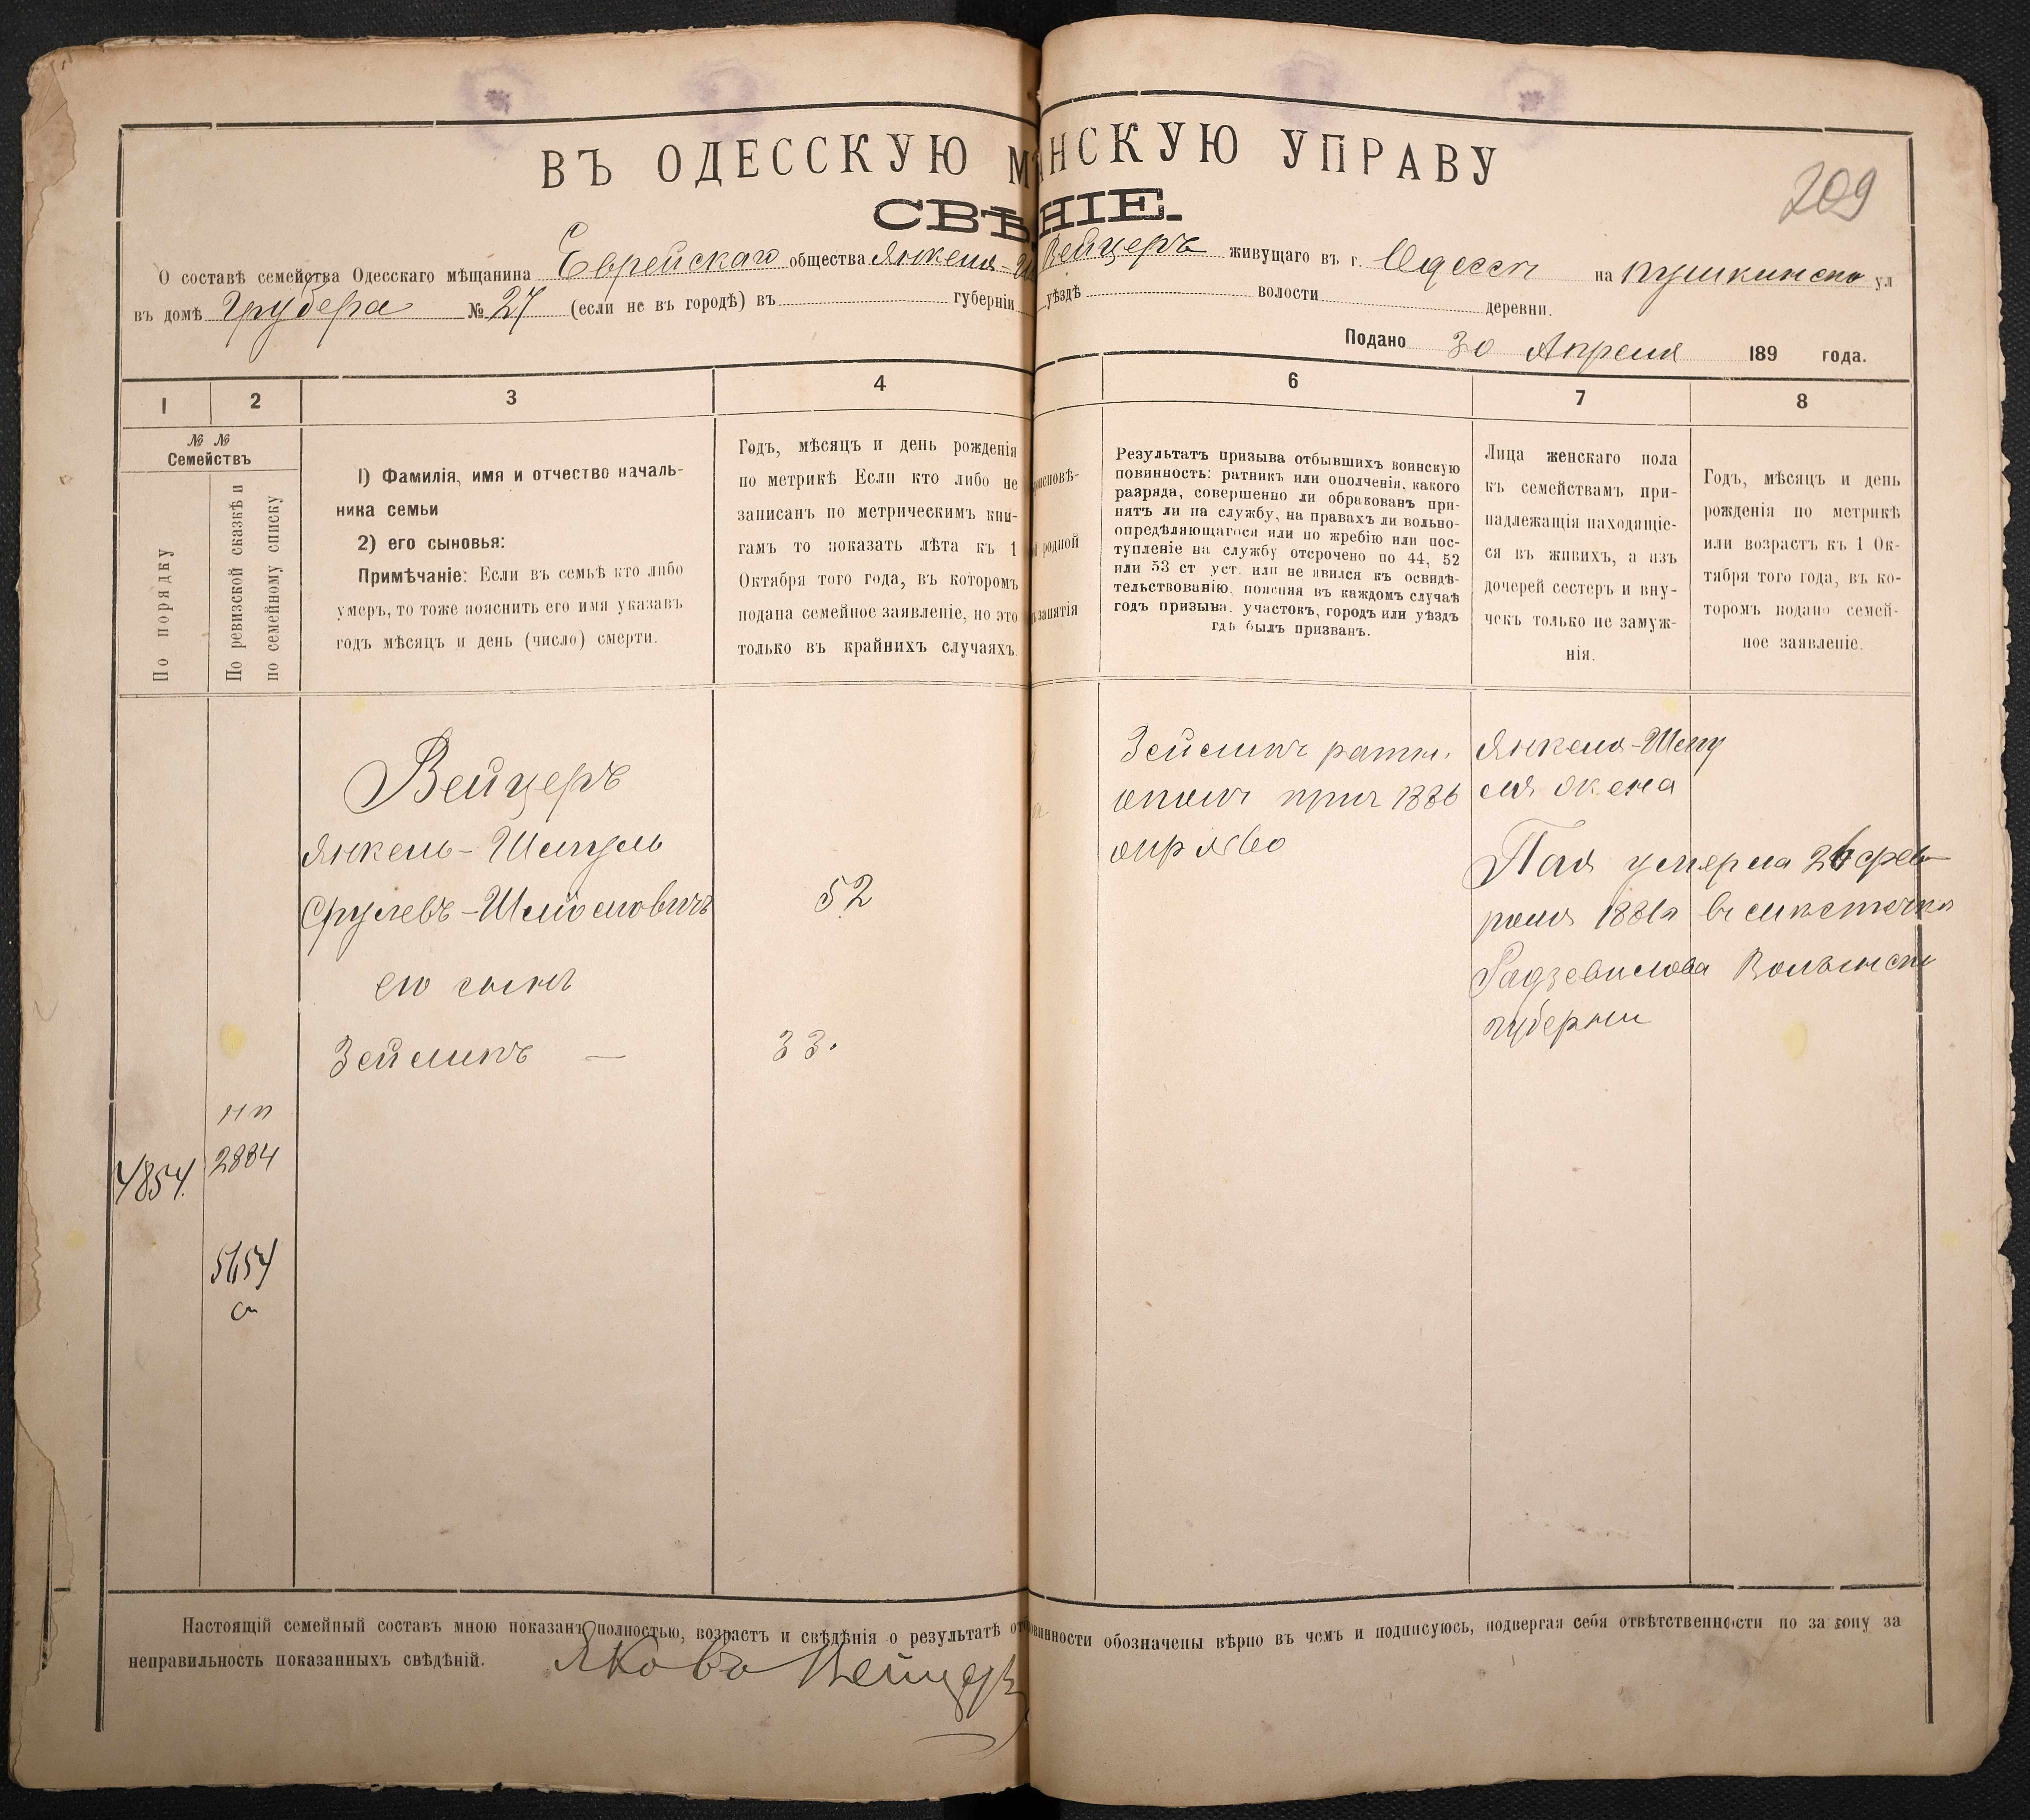 ВЪ ОДЕССКУЮ М АНСКУЮ УПРАВУ
209
СВѢ НІЕ.
О составѣ семейства Одесскаго мѣщанина Еврейскаго общества Янкеля-Ш Вейцеръ живущаго въ г. Одессѣ на Пушкинско ул
въ домѣ Грубера № 27 (если не въ городѣ) въ губерніи уѣздѣ волости деревни.
Подано 30 Апреля 189 года.
1 2 3 4 6 7 8
№ № Семействъ
По порядку
По ревизской сказкѣ и
по семейному списку
1) Фамилія, имя и отчество началь-
ника семьи
2) его сыновья:
Примѣчаніе: Если въ семьѣ кто либо
умеръ, то тоже пояснить его имя указавъ
годъ мѣсяцъ и день (число) смерти.
Годъ, мѣсяцъ и день рожденія
по метрикѣ Если кто либо не
записанъ по метрическимъ кни-
гамъ то показать лѣта къ 1
Октября того года, въ которомъ
подана семейное заявленіе, но это
только въ крайнихъ случаяхъ.
оисповѣ-
родной
занятія
Результатъ призыва отбывшихъ воинскую
повинность: ратникъ или ополченія, какого
разряда, совершенно ли обракованъ при-
нятъ ли на службу, на правахъ ли вольно-
опредѣляющагося или по жребію или пос-
тупленіе на службу отсрочено по 44, 52
или 53 ст уст. или не явился къ освидѣ-
тельствованію, поясняя въ каждомъ случаѣ
годъ призыва, участокъ, городъ или уѣздъ
гдѣ былъ призванъ.
Лица женскаго пола
къ семействамъ при-
надлежащія находящіе-
ся въ живихъ, а изъ
дочерей сестеръ и вну-
чекъ только не замуж-
нія.
Годъ, мѣсяцъ и день
рожденія по метрикѣ
или возрастъ къ 1 Ок-
тября того года, въ ко-
торомъ подано семей-
ное заявленіе.
Вейцеръ
Янкель-Шмуль
Срулевъ-Шлиомовичъ
52
его сынъ
Зейликъ —
33.
4854.
нп
2884
5654
Зейликъ ратн.
ополч при 1886
Янкеля-Шму
ля жена
Пая умерла 26 фев
раля 1881г въ мѣстечкѣ
Радзевилова Волынской
губерни
Настоящій семейный составъ мною показанъ полностью, возрастъ и свѣдѣнія о результатѣ от овинности обозначены вѣрно въ чемъ и подписуюсь, подвергая себя отвѣтственности по закону за
неправильность показанныхъ свѣдѣній.
Яковъ Вейцеръ